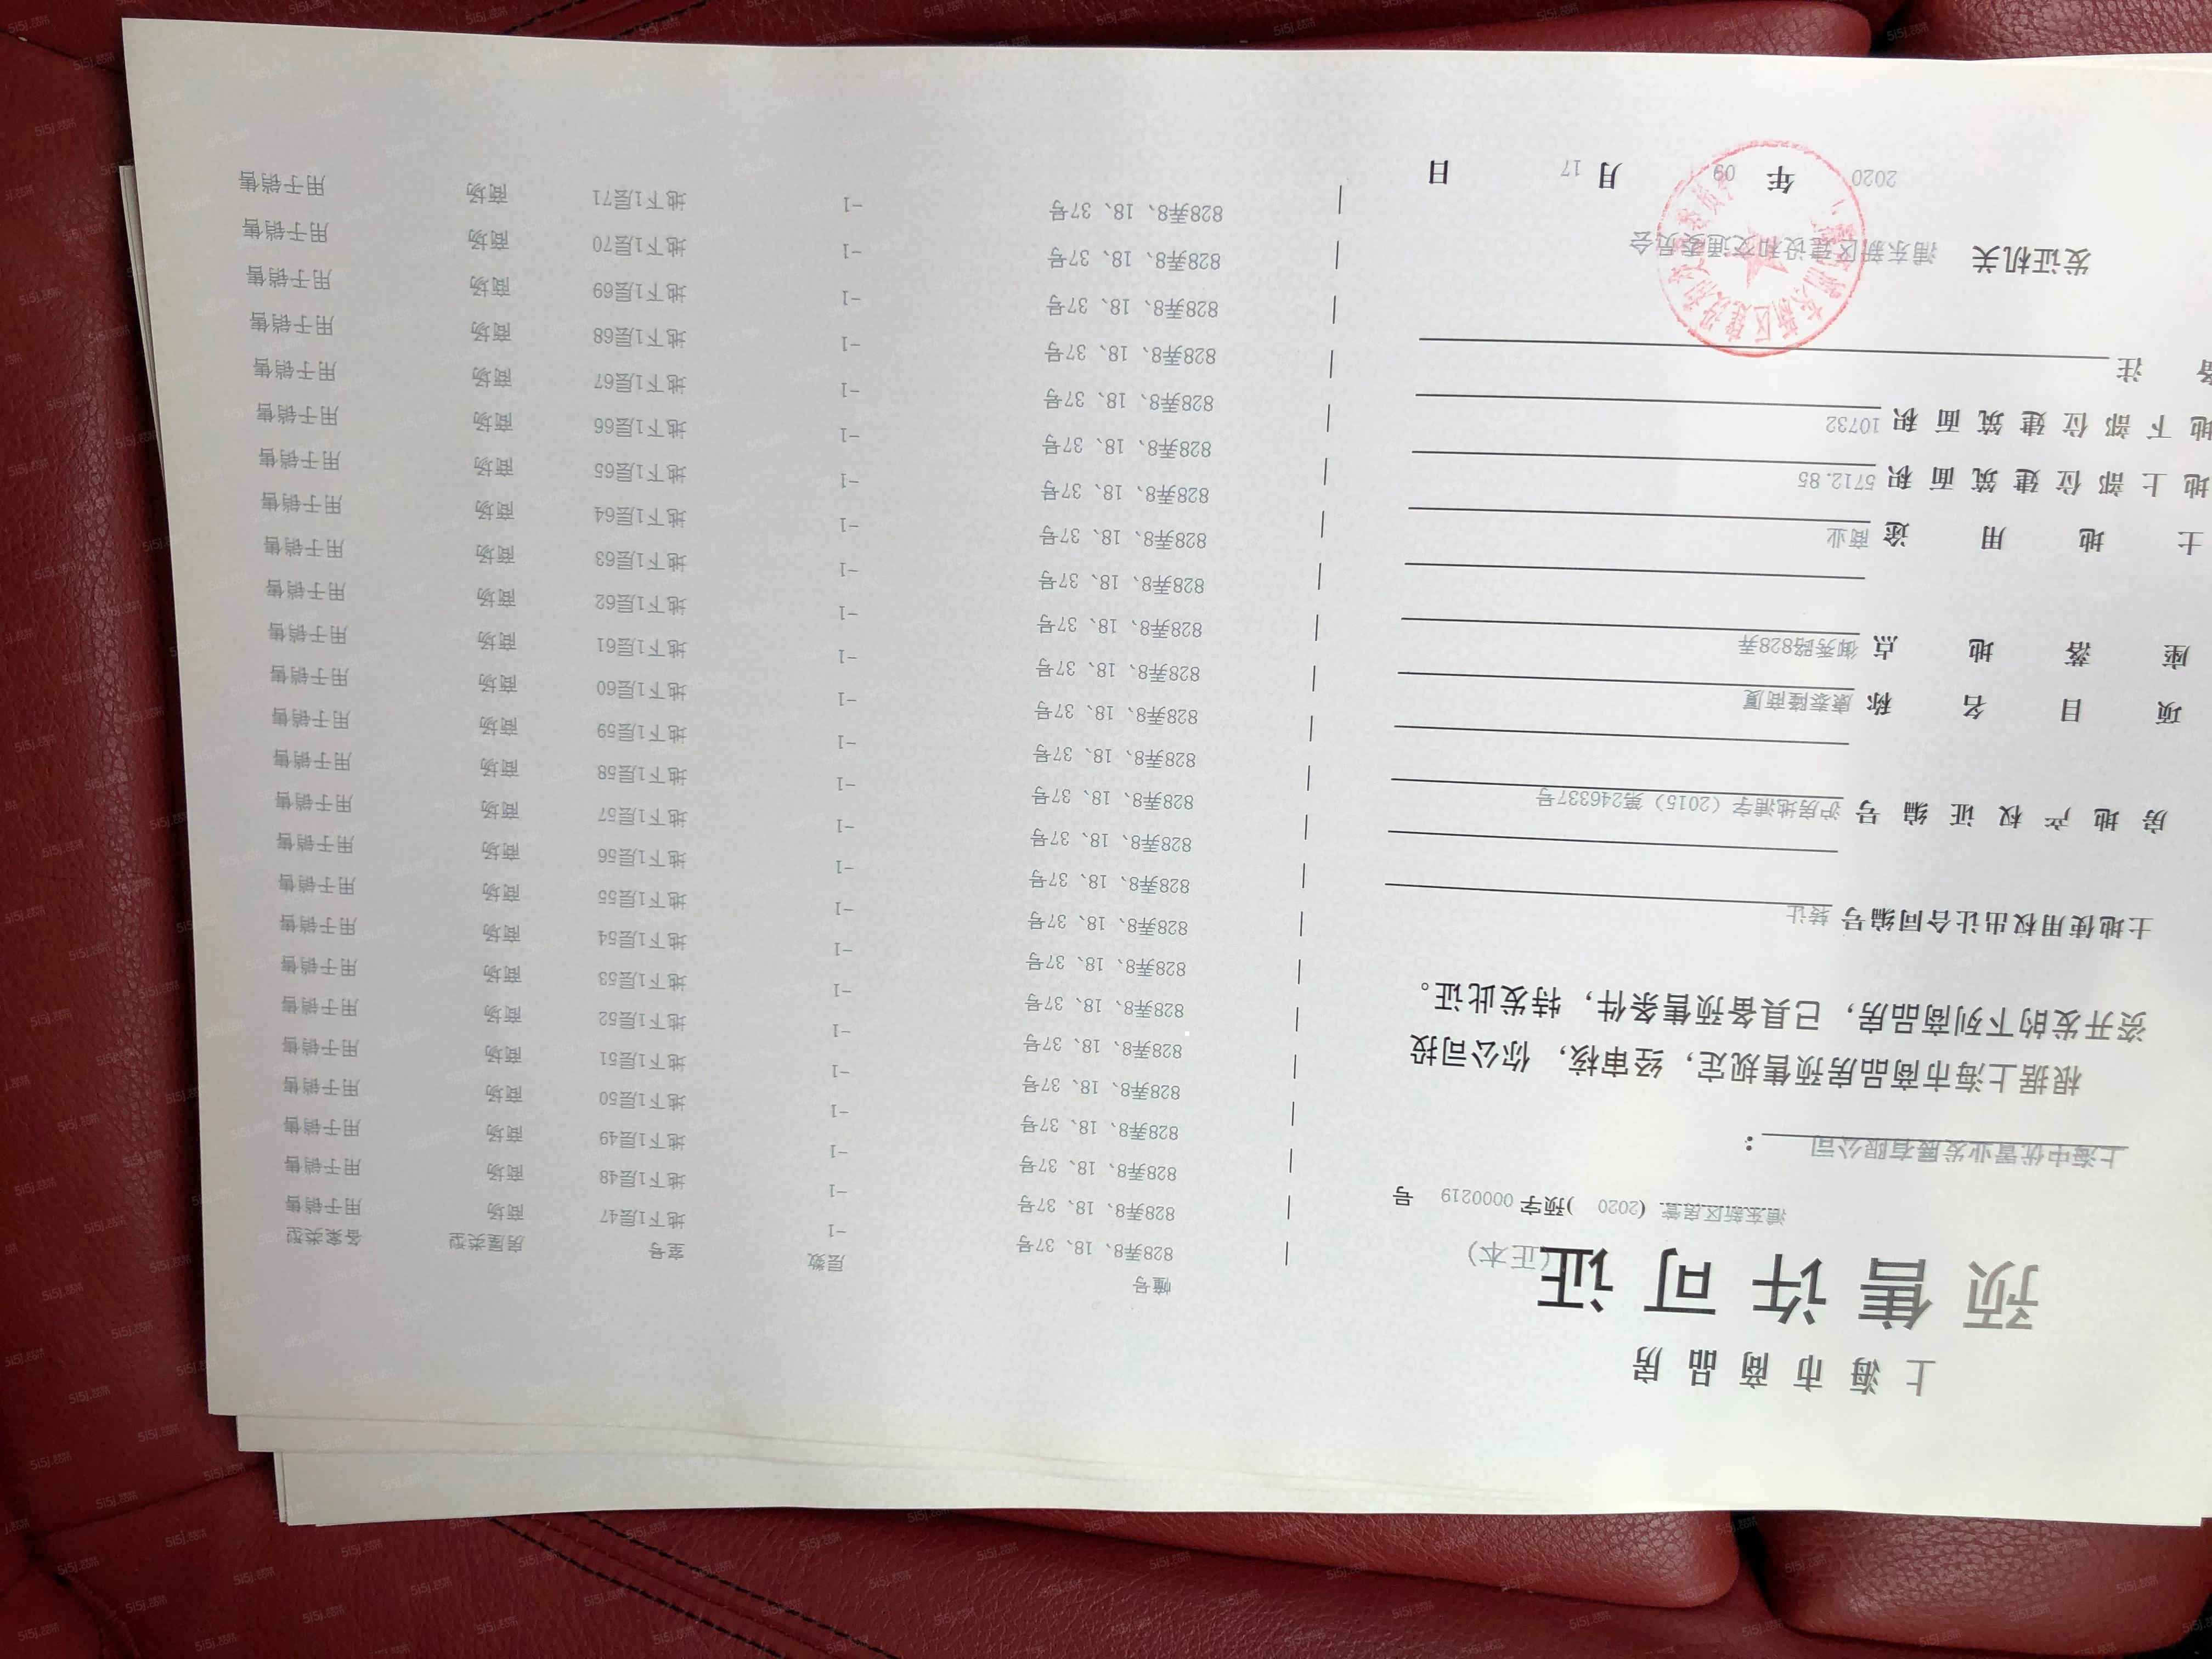 上海市商品房
预售许可证
(正本)
浦东新区房管 (2020)预字0000219号
上海中优置业发展有限公司:
根据上海市商品房预售规定,经审核,你公司投
资开发的下列商品房,已具备预售条件,特发此证。
土地使用权出让合同编号 转让
房地产权证编号 沪房地浦字(2015)第246337号
项目名称 康泰隆商厦
座落地点 御秀路828弄
土地用途 商业
地上部位建筑面积 5712.85
地下部位建筑面积 10732
备注
发证机关 浦东新区建设和交通委员会
2020年09月17日
幢号 层数 室号 房屋类型 备案类型
828弄8、18、37号 -1 地下1层47 商场 用于销售
828弄8、18、37号 -1 地下1层48 商场 用于销售
828弄8、18、37号 -1 地下1层49 商场 用于销售
828弄8、18、37号 -1 地下1层50 商场 用于销售
828弄8、18、37号 -1 地下1层51 商场 用于销售
828弄8、18、37号 -1 地下1层52 商场 用于销售
828弄8、18、37号 -1 地下1层53 商场 用于销售
828弄8、18、37号 -1 地下1层54 商场 用于销售
828弄8、18、37号 -1 地下1层55 商场 用于销售
828弄8、18、37号 -1 地下1层56 商场 用于销售
828弄8、18、37号 -1 地下1层57 商场 用于销售
828弄8、18、37号 -1 地下1层58 商场 用于销售
828弄8、18、37号 -1 地下1层59 商场 用于销售
828弄8、18、37号 -1 地下1层60 商场 用于销售
828弄8、18、37号 -1 地下1层61 商场 用于销售
828弄8、18、37号 -1 地下1层62 商场 用于销售
828弄8、18、37号 -1 地下1层63 商场 用于销售
828弄8、18、37号 -1 地下1层64 商场 用于销售
828弄8、18、37号 -1 地下1层65 商场 用于销售
828弄8、18、37号 -1 地下1层66 商场 用于销售
828弄8、18、37号 -1 地下1层67 商场 用于销售
828弄8、18、37号 -1 地下1层68 商场 用于销售
828弄8、18、37号 -1 地下1层69 商场 用于销售
828弄8、18、37号 -1 地下1层70 商场 用于销售
828弄8、18、37号 -1 地下1层71 商场 用于销售
5i5j.com